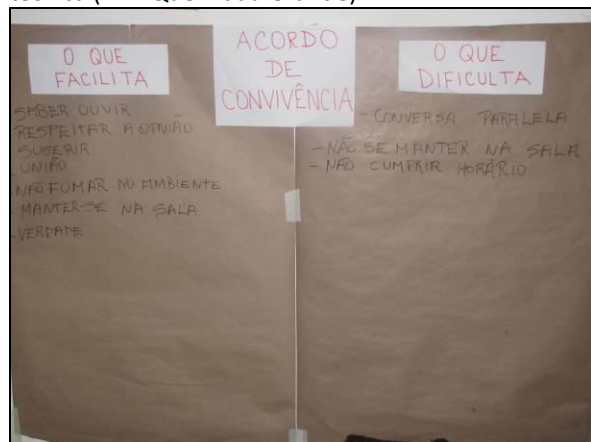 ACORDO
DE
CONVIVÊNCIA
O QUE
FACILITA
SABER OUVIR
RESPEITAR A OPNIÃO
SUGERIR
- UNIÃO
NÃO FUMAR NO AMBIENTE
- MANTER-SE NA SALA
- VERDADE
O QUE
DIFICULTA
- CONVERSA PARALELA
- NÃO SE MANTER NA SALA
- NÃO CUMPRIR HORÁRIO